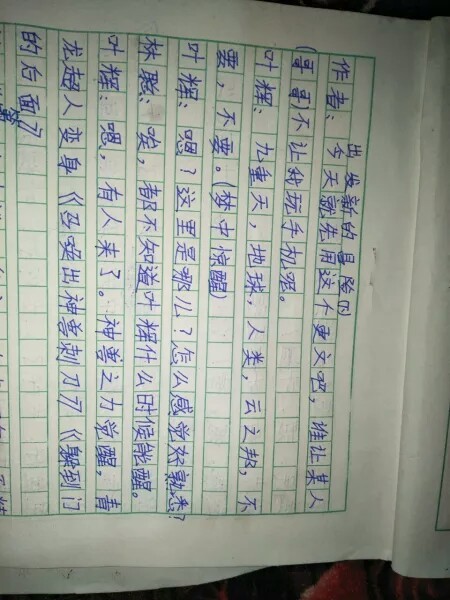 出发新的冒险的
作者：今天就先用这个更文吧，谁让某人
（哥哥）不让我玩手机呀。
叶辉：九重天，地球，人类，云之邦，不
要，不要。（梦中惊醒）
叶辉：嗯？这里是哪儿？怎么感觉好熟悉？
林聪：唉，都不知道叶辉什么时候能醒。
叶辉：嗯，有人来了。神兽之力觉醒，青
龙超人变身《召唤出神兽刺刀刀《躲到门
的后面了